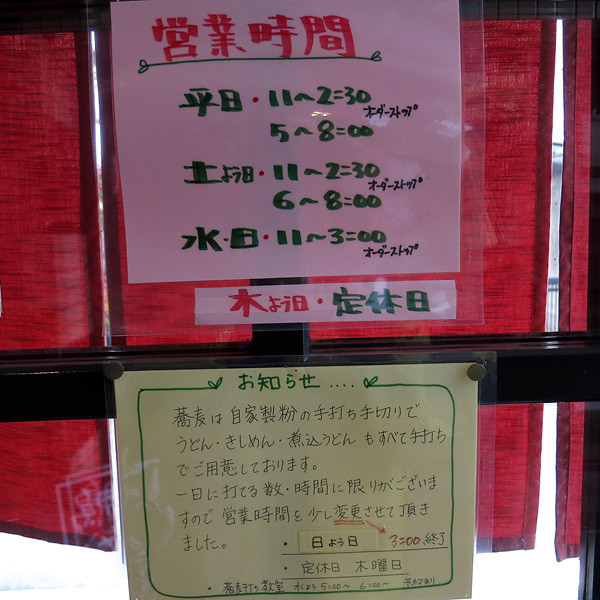 営業時間
平日・11〜2:30
オーダーストップ
5〜8:00
土よう日・11〜2:30
オーダーストップ
6〜8:00
水・日・11〜3:00
オーダーストップ
木よう日・定休日
お知らせ....
蕎麦は自家製粉の手打ち手切りで
うどん・きしめん・煮込うどんもすべて手打ち
でご用意しております。
一日に打てる数・時間に限りがございま
すので営業時間を少し変更させて頂き
ました。
・日よう日 3:00終了
・定休日 木曜日
・蕎麦打ち教室 水よう5:00〜 6:00〜